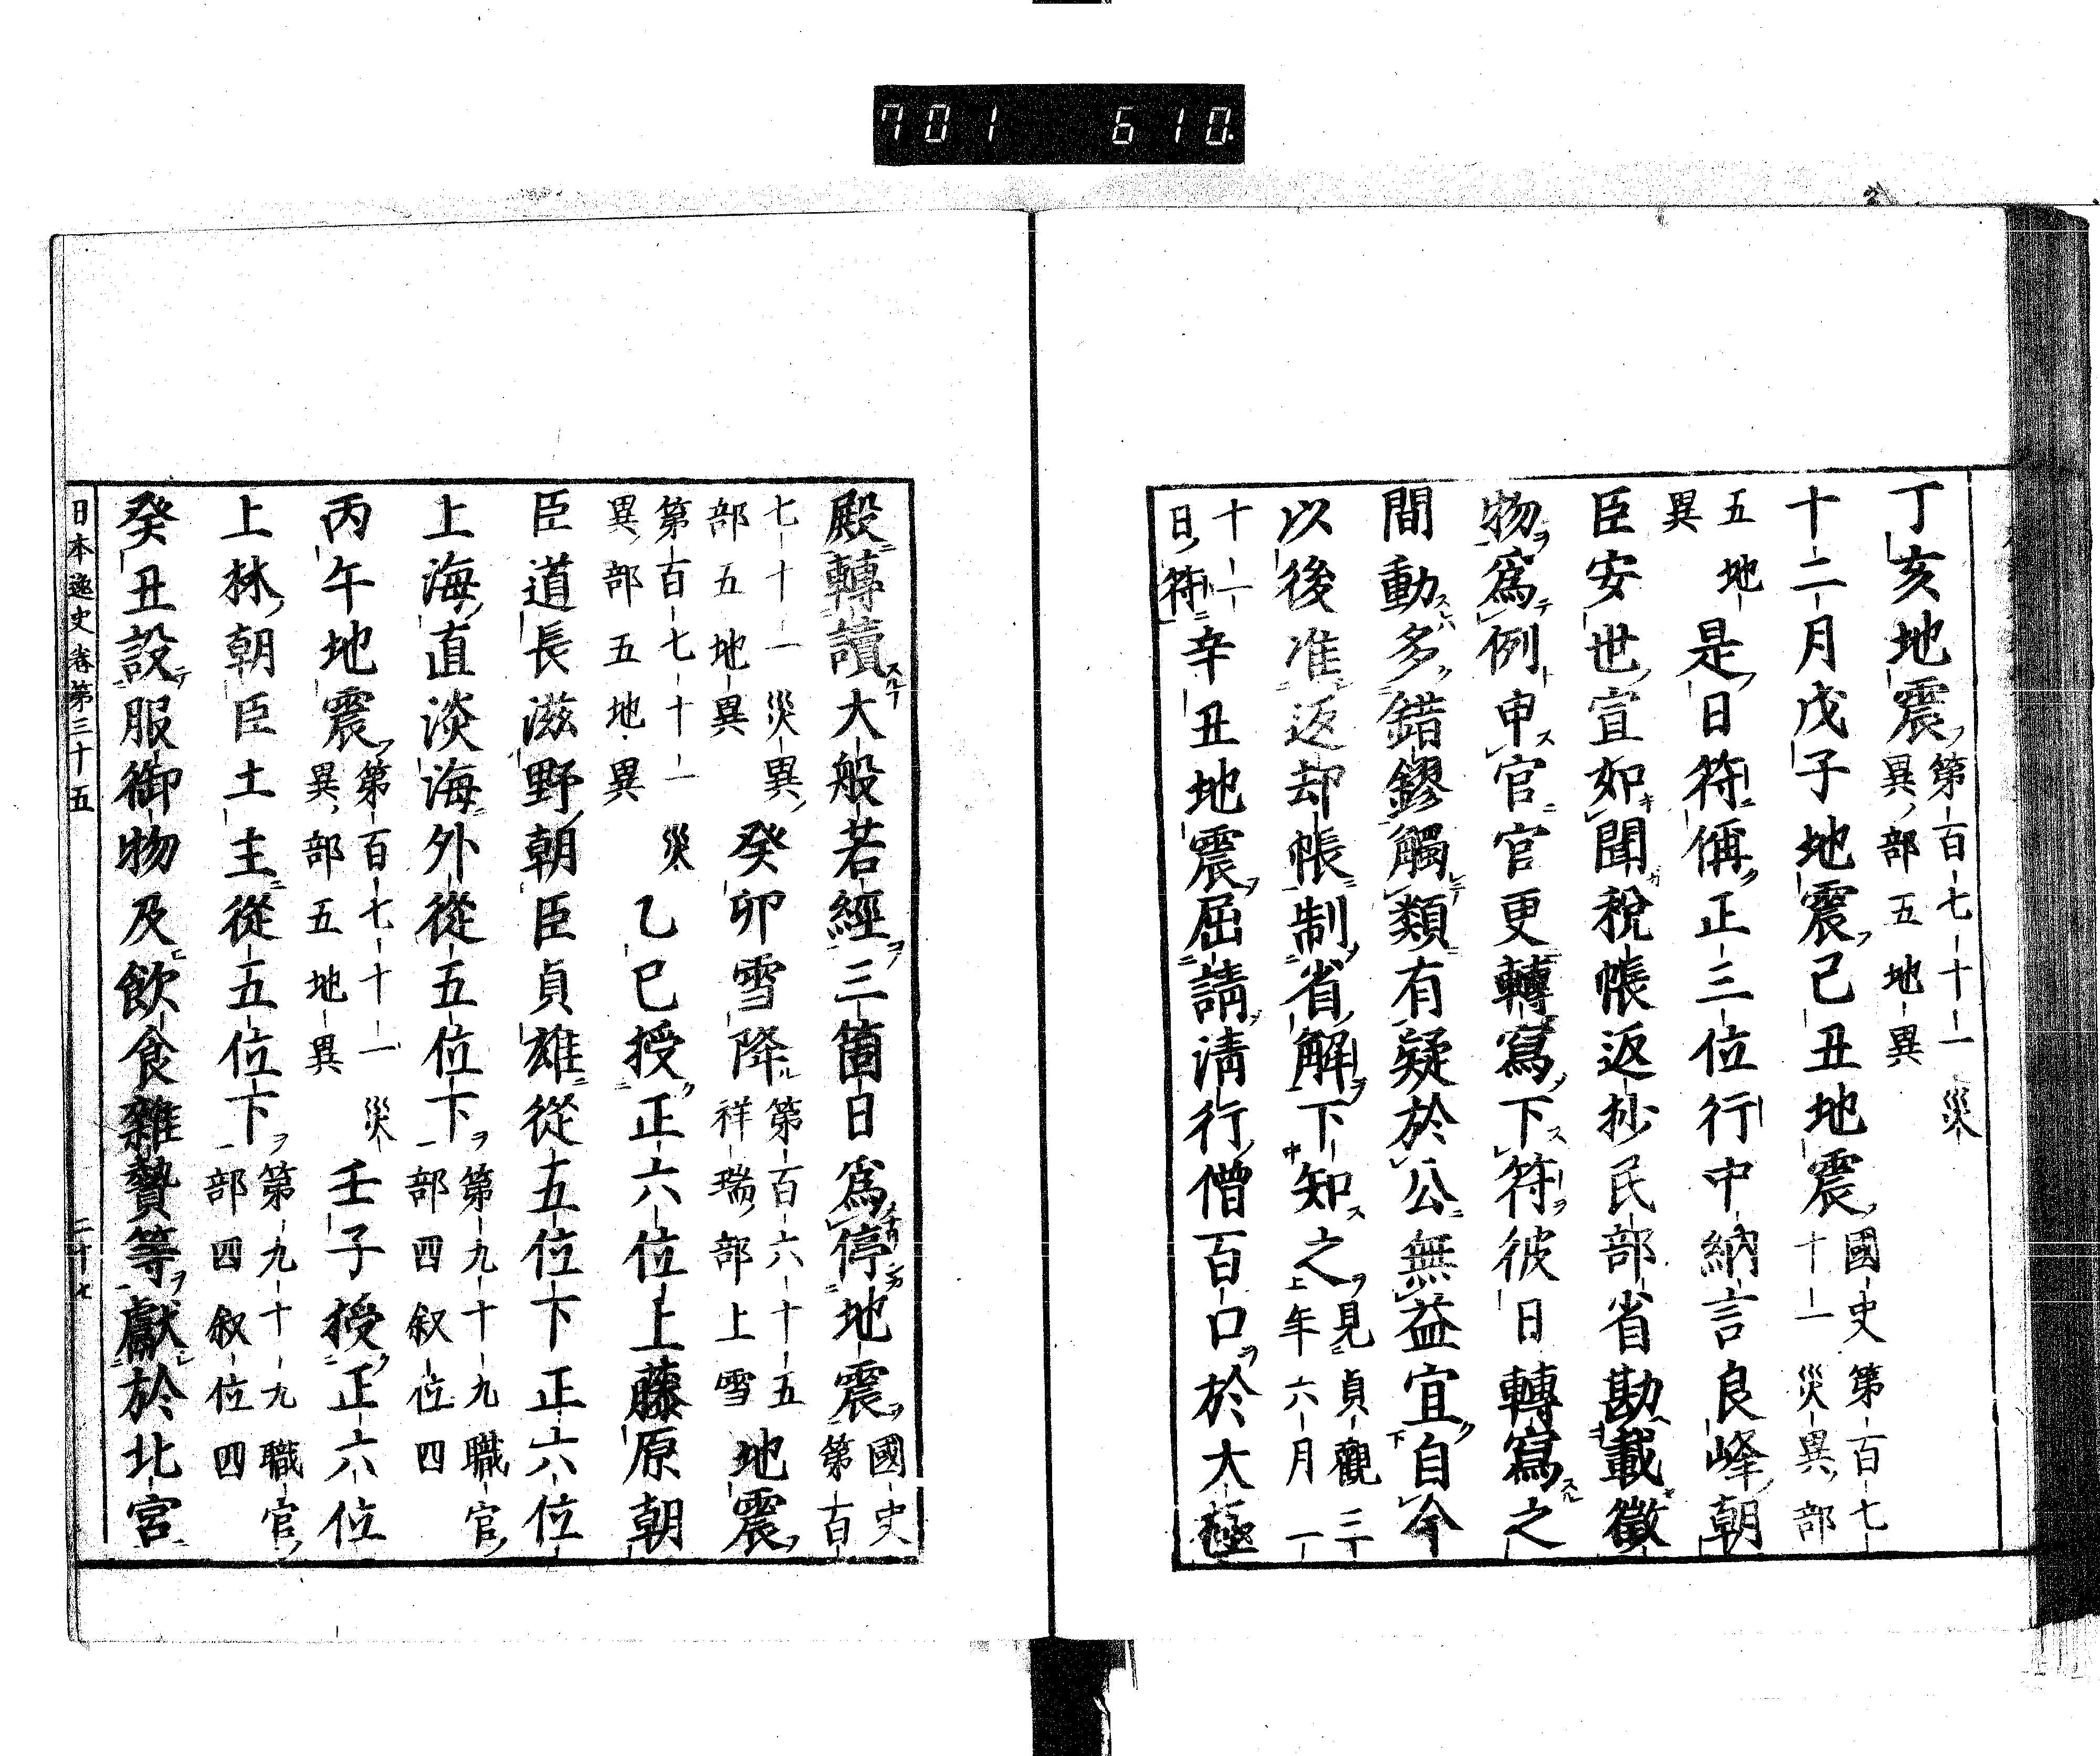 701 610
丁亥地震第百七十一災異部五地異
十二月戊子地震己丑地震國史第百七十一災異部
五地異是日符偁正三位行中納言良峰朝
臣安世宣如聞税帳返抄民部省勘載徵
物爲例申官官更轉寫下符彼日轉寫之
間動多錯鏐觸類有疑於公無益宜自今
以後准返却帳制省解下知之見貞觀三年六月一
十一日符辛丑地震屈請淸行僧百口於大極
殿轉讀大般若經三箇日爲停地震國史第百
七十一災異部五地異癸卯雪降第百六十五祥瑞部上雪地震
第百七十一災異部五地異乙巳授正六位上藤原朝
臣道長滋野朝臣貞雄從五位下正六位
上海直淡海外從五位下第九十九職官部四叙位四
丙午地震第百七十一災異部五地異壬子授正六位
上林朝臣土主從五位下第九十九職官部四叙位四
癸丑設服御物及飲食雜贄等獻於北宮
日本逸史卷第三十五 二十七